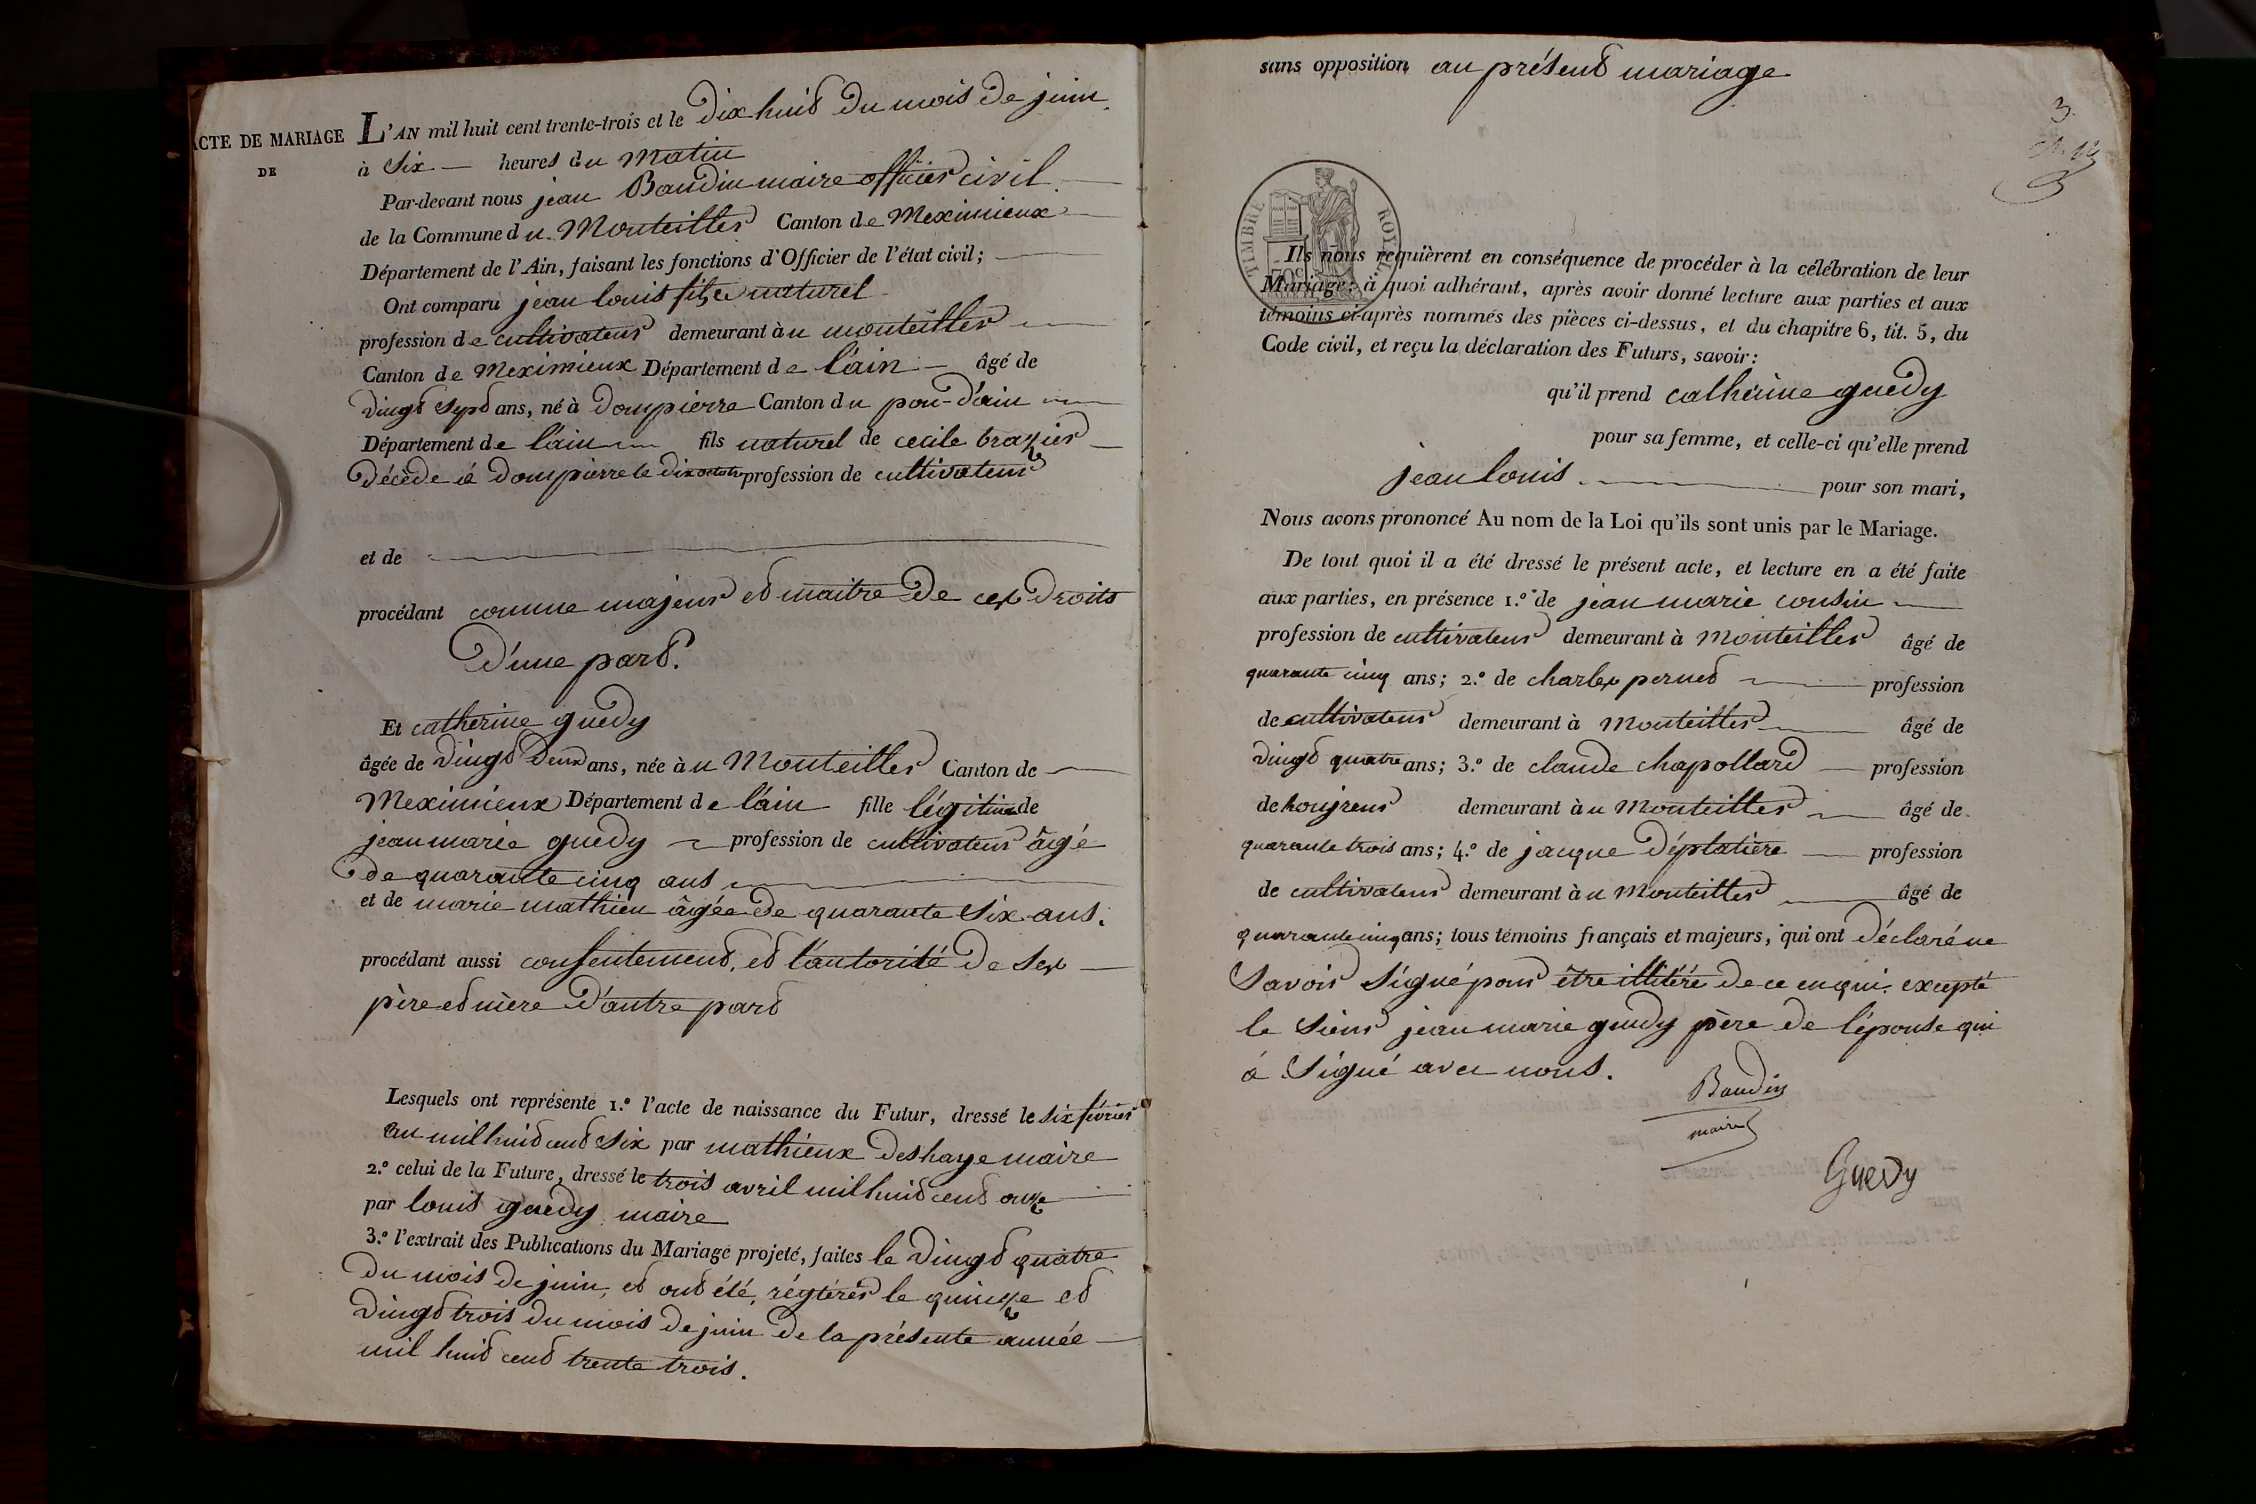 ACTE DE MARIAGE
DE
L'AN mil huit cent trente-trois et le dix huit du mois de juin
à Six heures du matin
Par-devant nous jean Baudin maire officier civil
de la Commune du Montellier Canton de Meximieux
Département de l'Ain, faisant les fonctions d'Officier de l'état civil;
Ont comparu jean louis fils naturel
profession de cultivateur demeurant à u montellier
Canton de Meximieux Département de l'ain âgé de
vingt sept ans, né à dompierre Canton du pon-d'ain
Département de l'ain fils naturel de cecile brazier
décédé à dompierre le dix profession de cultivateur
et de
procédant comme majeur et maitre de ces droits
d'une part.
Et catherine guedy
âgée de vingt deux ans, née à u Montellier Canton de
Meximieux Département de l'ain fille légitime de
jean marie guedy profession de cultivateur âgé
de quarante cinq ans
et de marie mathieu âgée de quarante six ans.
procédant aussi consentement, et l'autorité de ses
père et mère d'autre part
Lesquels ont représenté 1.º l'acte de naissance du Futur, dressé le six février
an mil huit cent six par mathieux deshaye maire
2.º celui de la Future, dressé le trois avril mil huit cent onze
par louis guedy maire
3.º l'extrait des Publications du Mariage projeté, faites le vingt quatre
du mois de juin, et ont été, régtérés le quinze et
vingt trois du mois de juin de la présente année
mil huit cent trente trois.
sans opposition au présent mariage
3.
TIMBRE ROYAL
Ils nous requièrent en conséquence de procéder à la célébration de leur
Mariage; à quoi adhérant, après avoir donné lecture aux parties et aux
témoins ci-après nommés des pièces ci-dessus, et du chapitre 6, tit. 5, du
Code civil, et reçu la déclaration des Futurs, savoir:
qu'il prend catherine guedy
pour sa femme, et celle-ci qu'elle prend
jean louis pour son mari,
Nous avons prononcé Au nom de la Loi qu'ils sont unis par le Mariage.
De tout quoi il a été dressé le présent acte, et lecture en a été faite
aux parties, en présence 1.º de jean marie cousin
profession de cultivateur demeurant à Montellier âgé de
quarante cinq ans; 2.º de charles pernet profession
de cultivateur demeurant à Montellier âgé de
vingt quatre ans; 3.º de claude chapollard profession
de demeurant à u Montellier âgé de
quarante trois ans; 4.º de jacque déplatière profession
de cultivateur demeurant à u Montellier âgé de
quarante cinq ans; tous témoins français et majeurs, qui ont déclaré ne
savoir signé pour être illitéré de ce enqui. excepté
le sieur jean marie guedy père de l'épouse qui
à signé avec nous.
Baudin
maire
Guedy